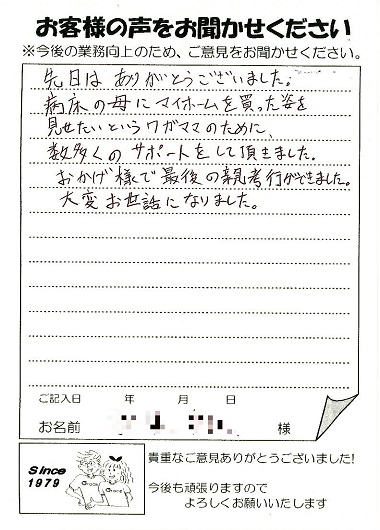 お客様の声をお聞かせください
※今後の業務向上のため、ご意見をお聞かせください。
先日は ありがとうございました。
病床の母にマイホームを買った姿を
見せたいというワガママのために、
数多くのサポートをして頂きました。
おかげ様で最後の親孝行ができました。
大変お世話になりました。
ご記入日 年 月 日
お名前 様
Since
1979
貴重なご意見ありがとうございました!
今後も頑張りますので
よろしくお願いいたします